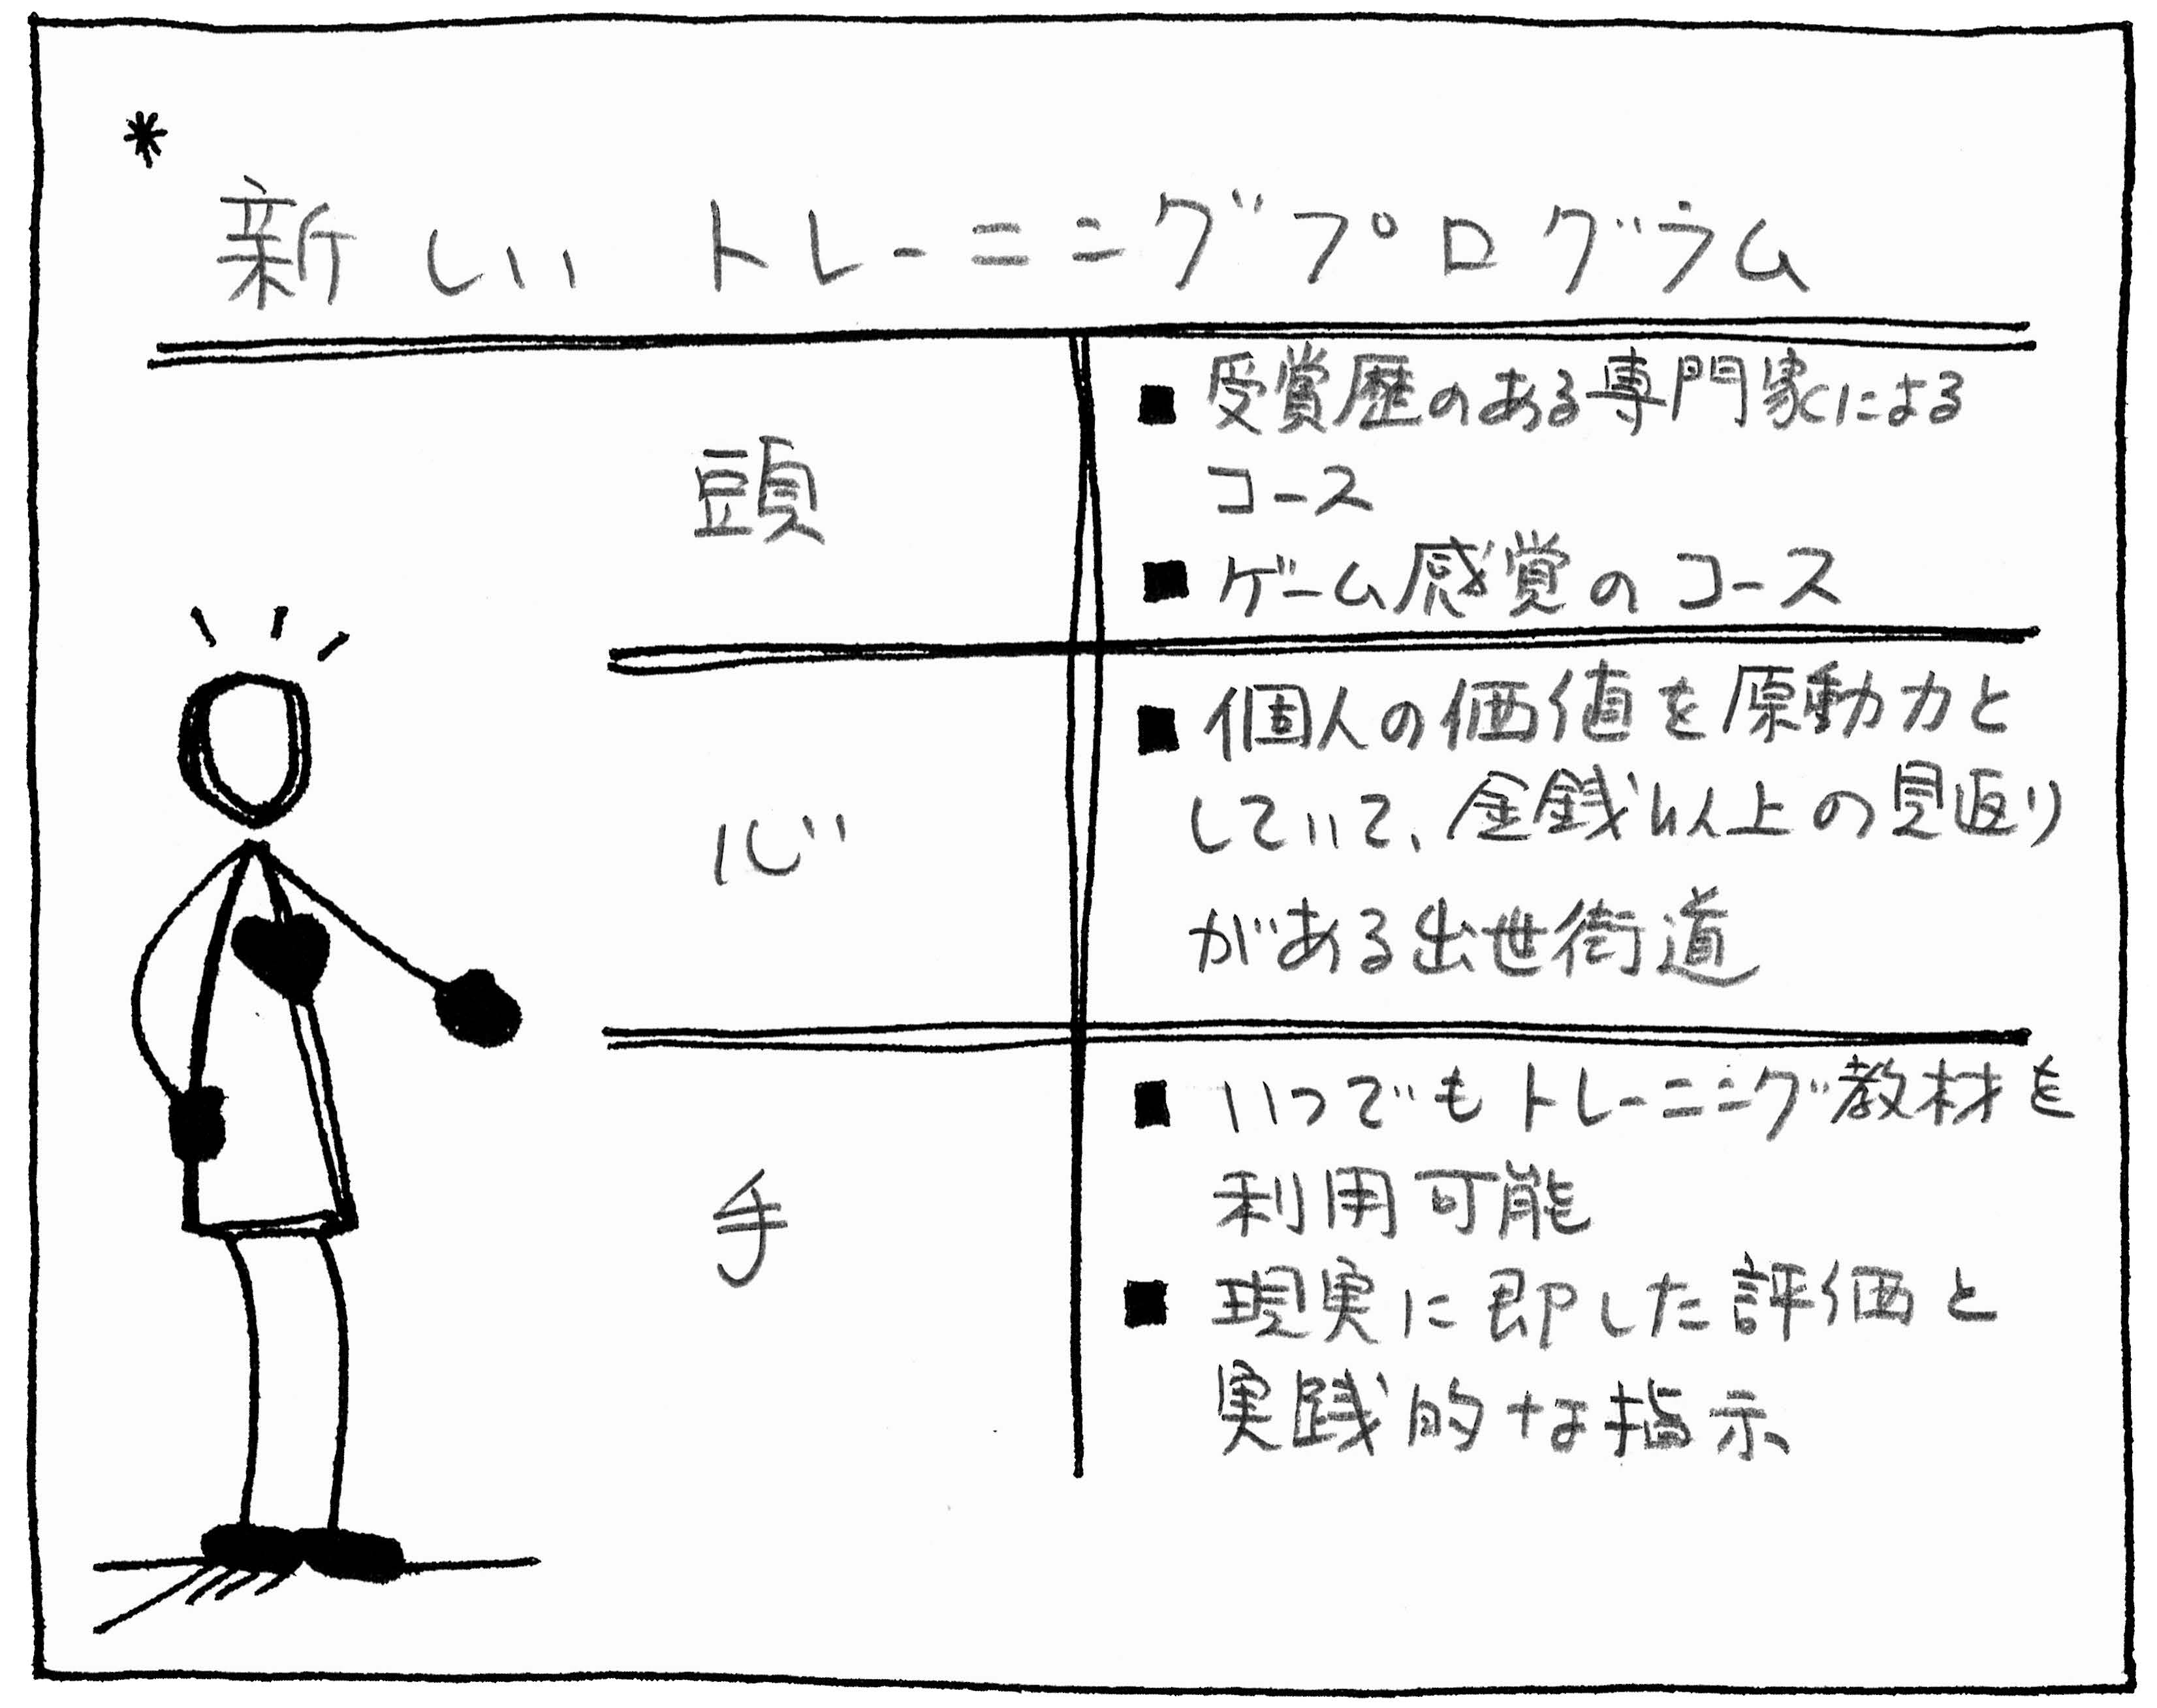 *
新しいトレーニングプログラム
頭
■ 受賞歴のある専門家による
コース
■ ゲーム感覚のコース
心
■ 個人の価値を原動力と
していて、金銭以上の見返り
がある出世街道
手
■ いつでもトレーニング教材を
利用可能
■ 現実に即した評価と
実践的な指示